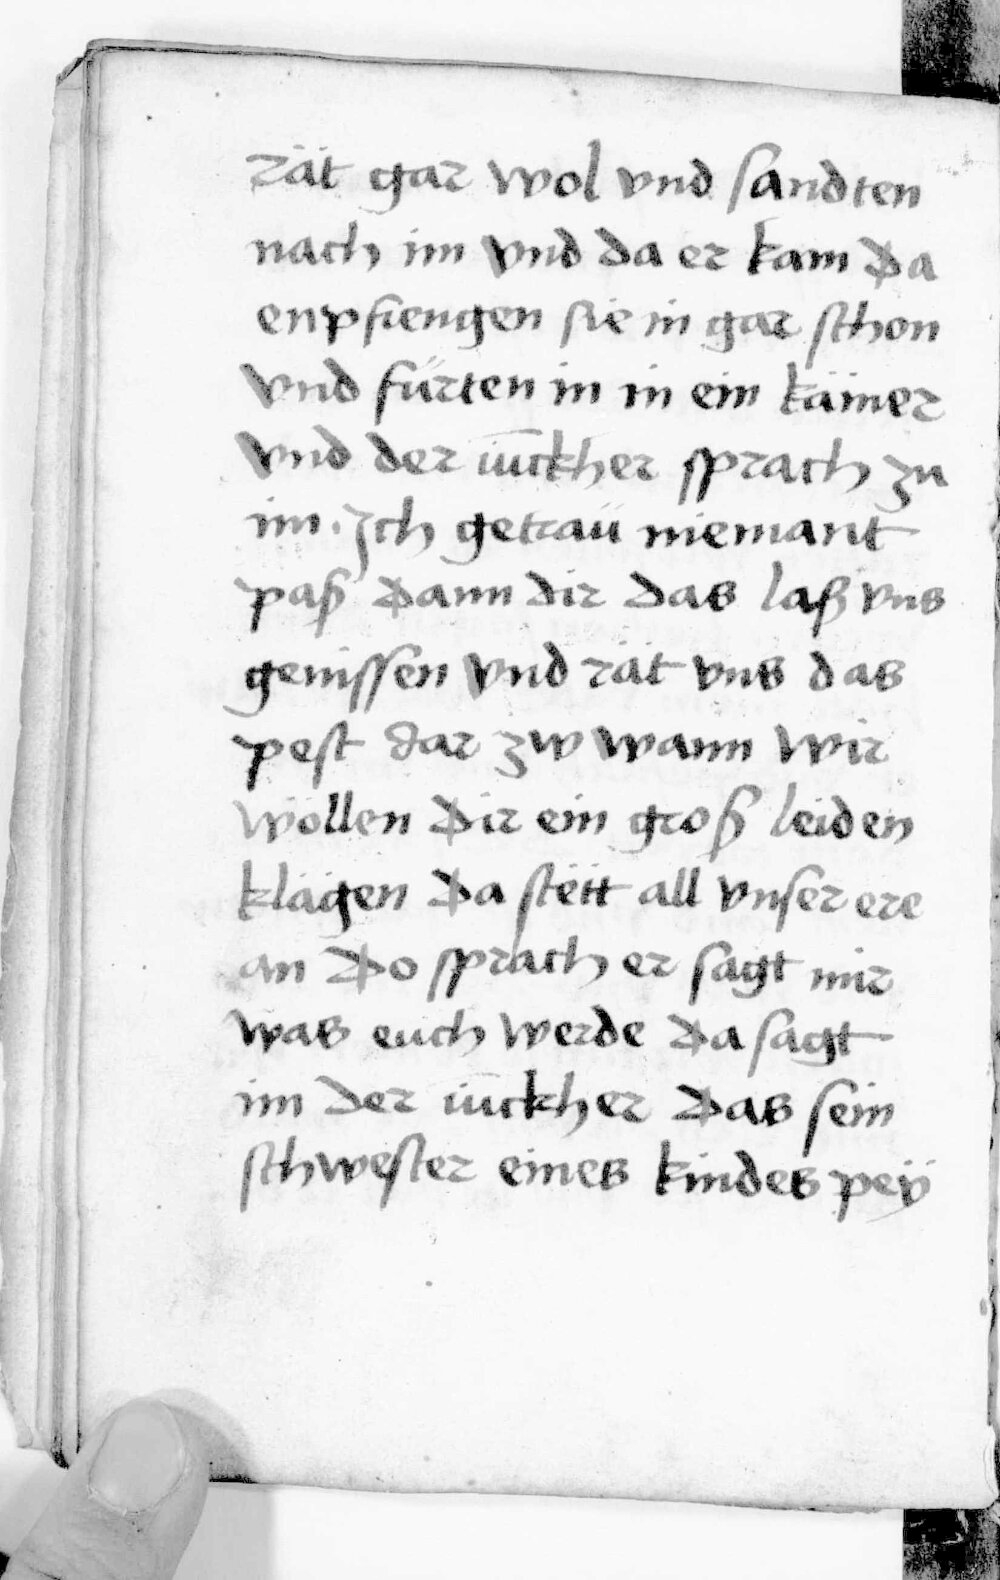 rät gar wol vnd sandten
nach im vnd da er kam Da
enpfiengen sie in gar schon
vnd fürten in in ein kämer
vnd der iūckher sprach zu
im. Ich getraü niemant
paß Dann dir das laß vns
genissen vnd rät vns das
pest dar zw wann wir
wöllen Dir ein groß leiden
klägen Da stëtt all vnser ere
an Do sprach er sagt mir
was euch werde Da sagt
im der iūckher Das sein
schwester eines kindes peÿ